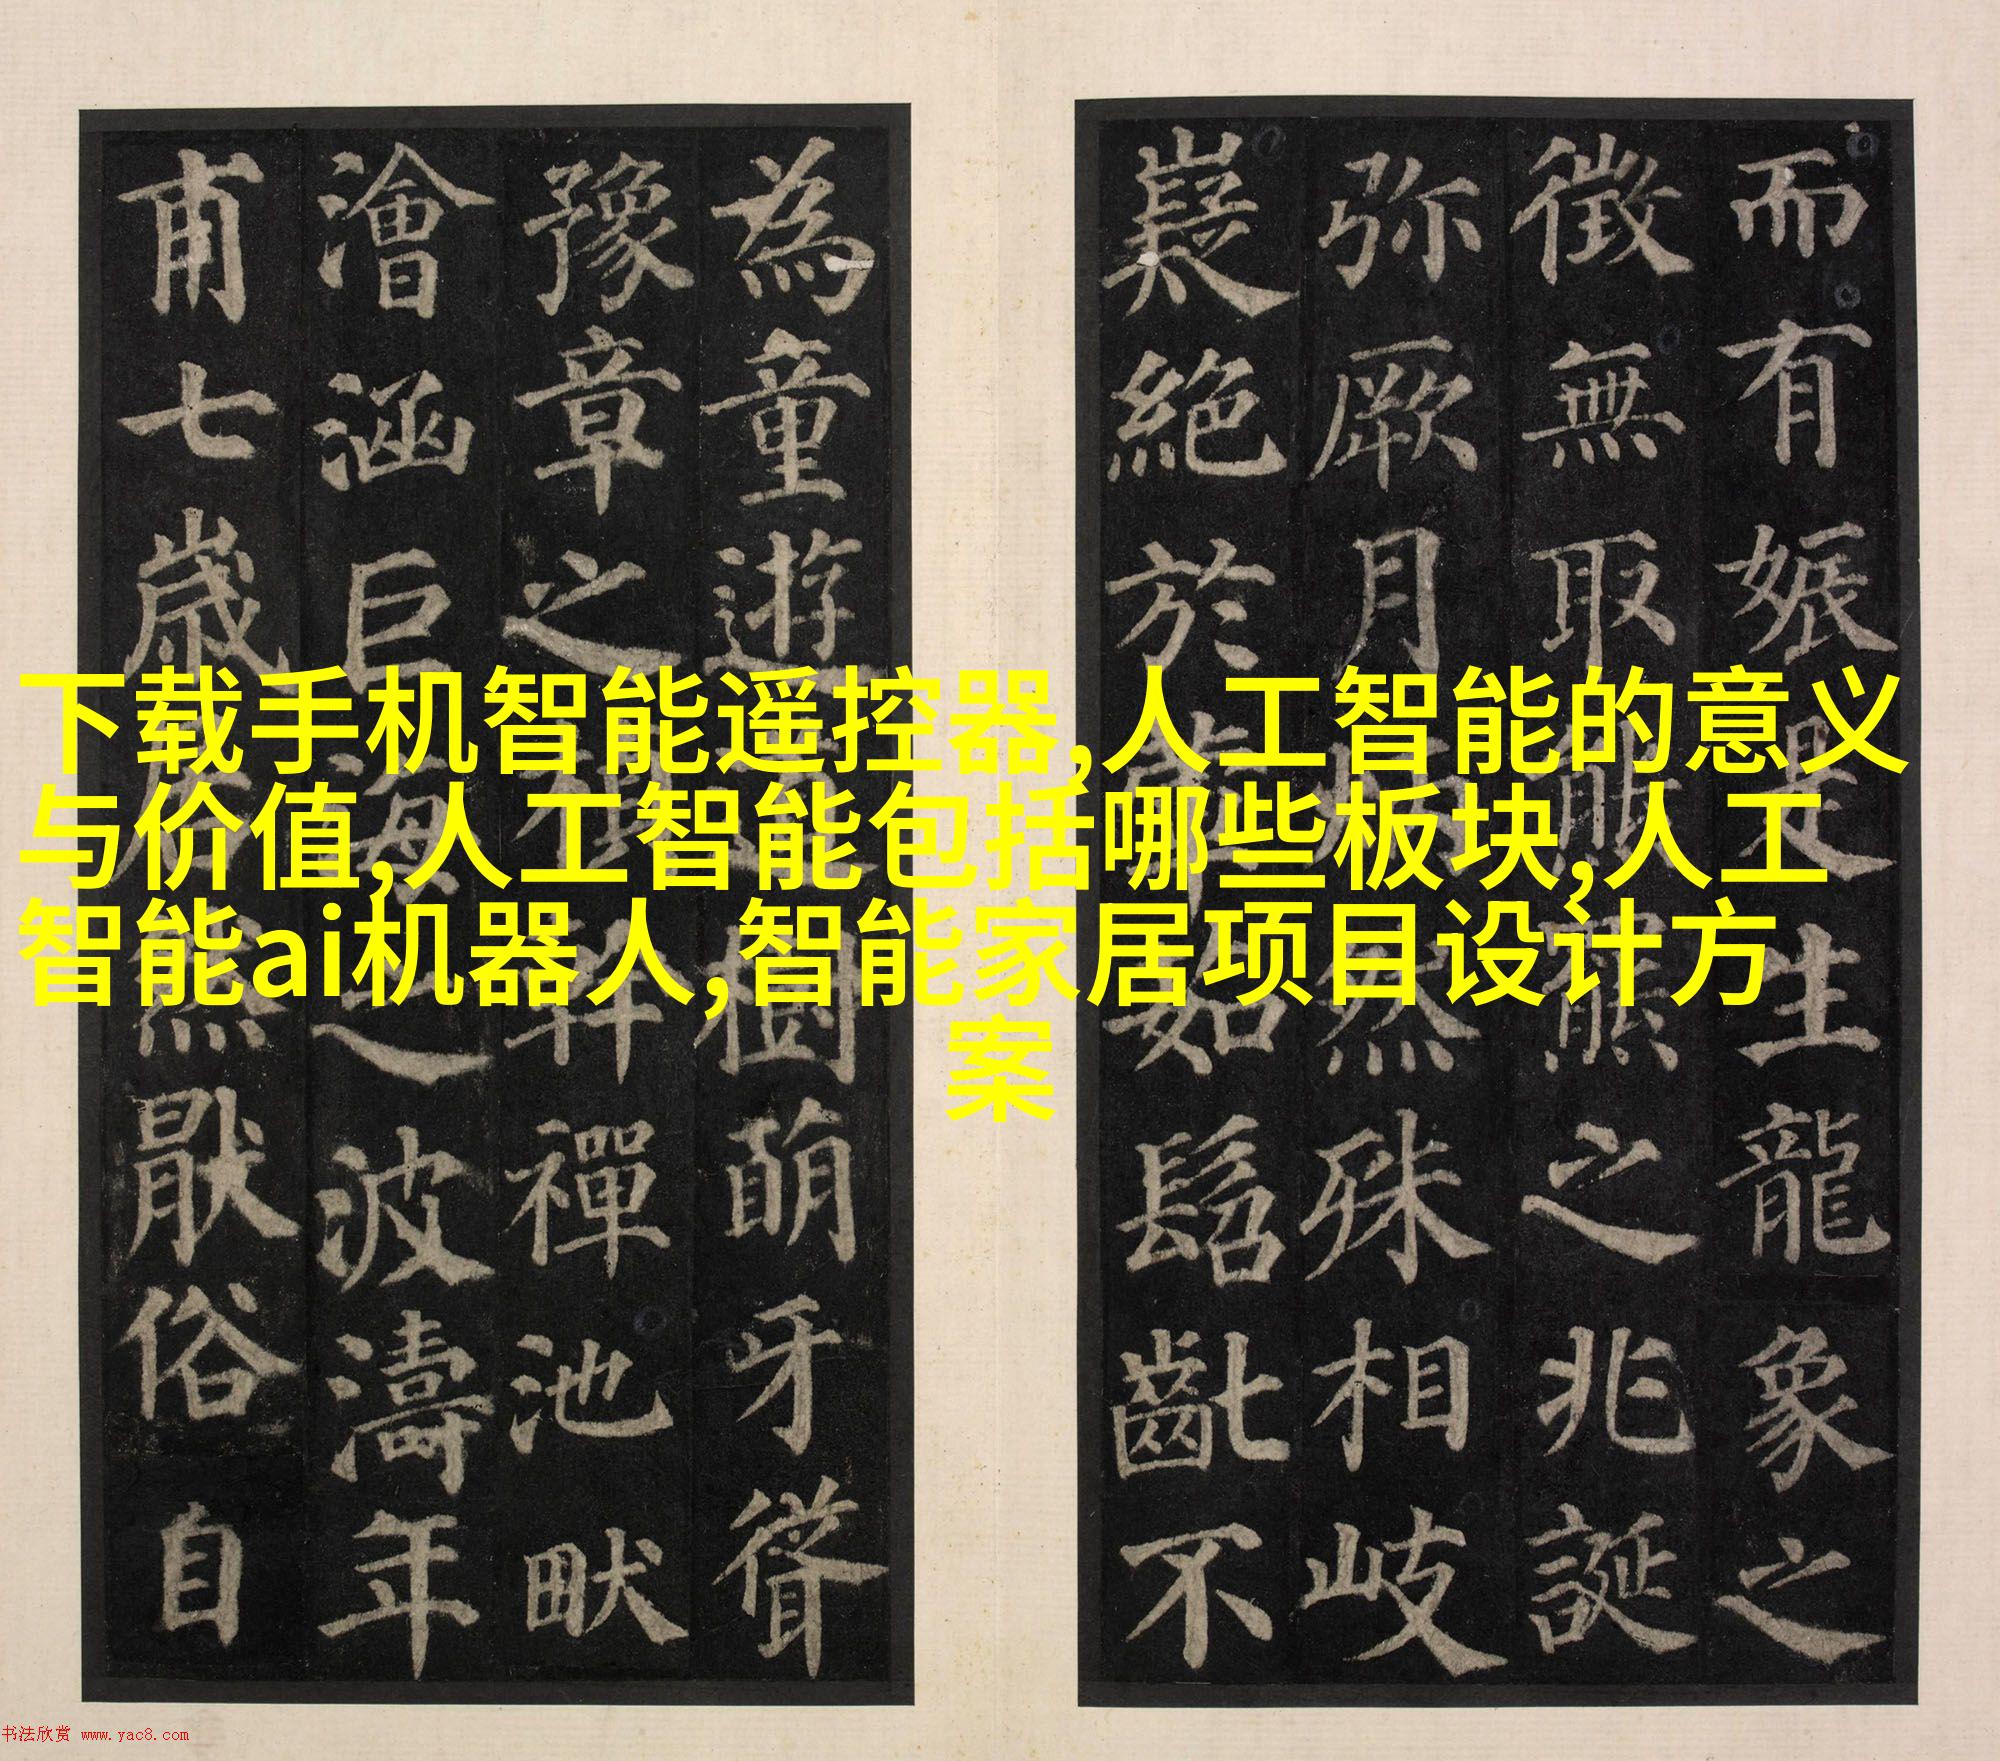 而有娠是生龍象之
徵無取之兆誕
弥厥月然殊相岐
嶷絶於如髫齔不
為童遊樹萌牙聳
豫章之幹禪池畎
澮涵巨海之波濤年
甫七歲居然厭俗自
下载手机智能遥控器,人工智能的意义
与价值,人工智能包括哪些板块,人工
智能ai机器人,智能家居项目设计方
案
书法欣赏 www.yac8.com